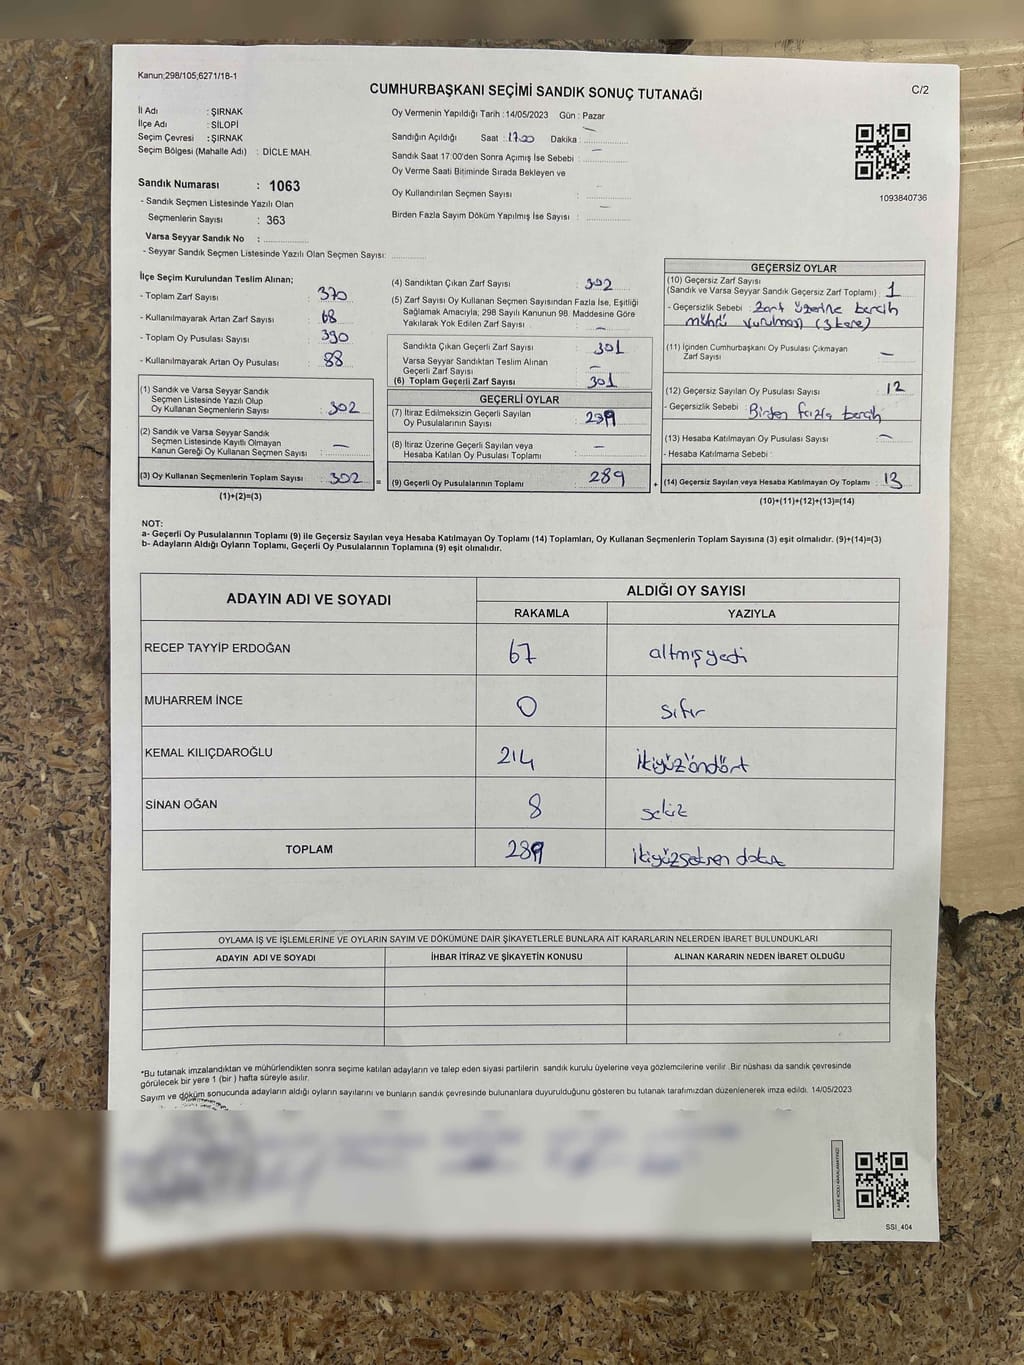 Kanun;298/105;6271/18-1
CUMHURBAŞKANI SEÇİMİ SANDIK SONUÇ TUTANAĞI
C/2
İl Adı : ŞIRNAK
İlçe Adı : SİLOPİ
Seçim Çevresi : ŞIRNAK
Seçim Bölgesi (Mahalle Adı) : DİCLE MAH.
Sandık Numarası : 1063
- Sandık Seçmen Listesinde Yazılı Olan
Seçmenlerin Sayısı : 363
Varsa Seyyar Sandık No :
- Seyyar Sandık Seçmen Listesinde Yazılı Olan Seçmen Sayısı:
Oy Vermenin Yapıldığı Tarih :14/05/2023 Gün : Pazar
Sandığın Açıldığı Saat : 17.00 Dakika : —
Sandık Saat 17:00'den Sonra Açımış İse Sebebi : —
Oy Verme Saati Bitiminde Sırada Bekleyen ve
Oy Kullandırılan Seçmen Sayısı : —
Birden Fazla Sayım Döküm Yapılmış İse Sayısı : —
1093840736
İlçe Seçim Kurulundan Teslim Alınan;
- Toplam Zarf Sayısı : 370
- Kullanılmayarak Artan Zarf Sayısı : 68
- Toplam Oy Pusulası Sayısı : 390
- Kullanılmayarak Artan Oy Pusulası : 88
(1) Sandık ve Varsa Seyyar Sandık
Seçmen Listesinde Yazılı Olup
Oy Kullanan Seçmenlerin Sayısı : 302
(2) Sandık ve Varsa Seyyar Sandık
Seçmen Listesinde Kayıtlı Olmayan
Kanun Gereği Oy Kullanan Seçmen Sayısı : —
(3) Oy Kullanan Seçmenlerin Toplam Sayısı : 302
(1)+(2)=(3)
(4) Sandıktan Çıkan Zarf Sayısı : 302
(5) Zarf Sayısı Oy Kullanan Seçmen Sayısından Fazla İse, Eşitliği
Sağlamak Amacıyla; 298 Sayılı Kanunun 98. Maddesine Göre
Yakılarak Yok Edilen Zarf Sayısı : —
Sandıkta Çıkan Geçerli Zarf Sayısı : 301
Varsa Seyyar Sandıktan Teslim Alınan
Geçerli Zarf Sayısı : —
(6) Toplam Geçerli Zarf Sayısı : 301
GEÇERLİ OYLAR
(7) İtiraz Edilmeksizin Geçerli Sayılan
Oy Pusulalarının Sayısı : 289
(8) İtiraz Üzerine Geçerli Sayılan veya
Hesaba Katılan Oy Pusulası Toplamı : —
= (9) Geçerli Oy Pusulalarının Toplamı : 289
GEÇERSİZ OYLAR
(10) Geçersiz Zarf Sayısı
(Sandık ve Varsa Seyyar Sandık Geçersiz Zarf Toplamı) : 1
- Geçersizlik Sebebi : Zarf üzerine tercih
mührü vurulması (3 kere)
(11) İçinden Cumhurbaşkanı Oy Pusulası Çıkmayan
Zarf Sayısı : —
(12) Geçersiz Sayılan Oy Pusulası Sayısı : 12
- Geçersizlik Sebebi : Birden fazla tercih
(13) Hesaba Katılmayan Oy Pusulası Sayısı : —
- Hesaba Katılmama Sebebi :
+ (14) Geçersiz Sayılan veya Hesaba Katılmayan Oy Toplamı : 13
(10)+(11)+(12)+(13)=(14)
NOT:
a- Geçerli Oy Pusulalarının Toplamı (9) ile Geçersiz Sayılan veya Hesaba Katılmayan Oy Toplamı (14) Toplamları, Oy Kullanan Seçmenlerin Toplam Sayısına (3) eşit olmalıdır. (9)+(14)=(3)
b- Adayların Aldığı Oyların Toplamı, Geçerli Oy Pusulalarının Toplamına (9) eşit olmalıdır.
ADAYIN ADI VE SOYADI
ALDIĞI OY SAYISI
RAKAMLA YAZIYLA
RECEP TAYYİP ERDOĞAN 67 altmışyedi
MUHARREM İNCE 0 sıfır
KEMAL KILIÇDAROĞLU 214 ikiyüz ondört
SİNAN OĞAN 8 sekiz
TOPLAM 289 ikiyüzseksen dokuz
OYLAMA İŞ VE İŞLEMLERİNE VE OYLARIN SAYIM VE DÖKÜMÜNE DAİR ŞİKAYETLERLE BUNLARA AİT KARARLARIN NELERDEN İBARET BULUNDUKLARI
ADAYIN ADI VE SOYADI İHBAR İTİRAZ VE ŞİKAYETİN KONUSU ALINAN KARARIN NEDEN İBARET OLDUĞU
*Bu tutanak imzalandıktan ve mühürlendikten sonra seçime katılan adayların ve talep eden siyasi partilerin sandık kurulu üyelerine veya gözlemcilerine verilir .Bir nüshası da sandık çevresinde
görülecek bir yere 1 (bir ) hafta süreyle asılır.
Sayım ve döküm sonucunda adayların aldığı oyların sayılarını ve bunların sandık çevresinde bulunanlara duyurulduğunu gösteren bu tutanak tarafımızdan düzenlenerek imza edildi. 14/05/2023
SSI_404